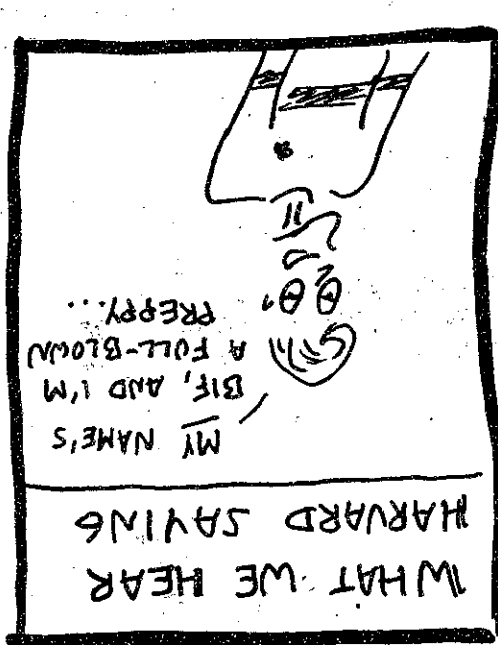 WHAT WE HEAR
HARVARD SAYING
MY NAME'S
BIF, AND I'M
A FULL-BLOWN
PREPPY...